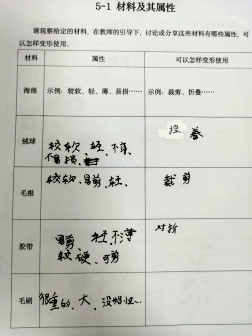 5-1 材料及其属性
请观察给定的材料，在教师的引导下，讨论或分享这些材料有哪些属性，可
以怎样变形使用。
材料 属性 可以怎样变形使用
海绵 示例：较软、轻、薄、易损…… 示例：裁剪、折叠……
绒球 较软、轻、不薄、
不易损、 卷
毛根 较软、易剪、轻、 裁剪
胶带 易剪、轻、不薄 对折
较硬、可剪
毛刷 很重的、大、没